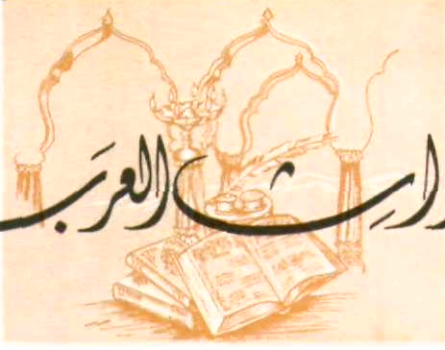 راث العرب